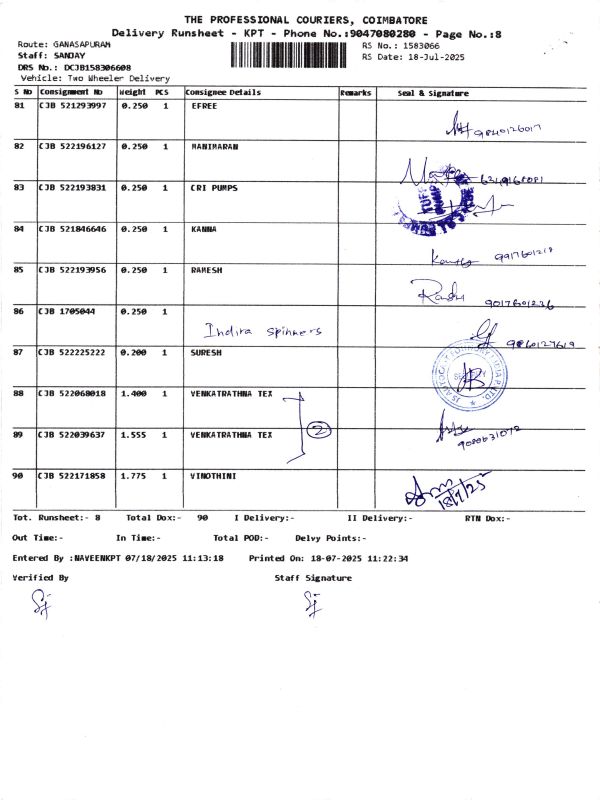 THE PROFESSIONAL COURIERS, COIMBATORE
Delivery Runsheet - KPT - Phone No.:9047080280 - Page No.:8
Route: GANASAPURAM
RS No.: 1583066
Staff: SANJAY
RS Date: 18-Jul-2025
DRS No.: DCJB158306608
Vehicle: Two Wheeler Delivery
S No Consignment No Weight PCS Consignee Details Remarks Seal & Signature
81 CJB 521293997 0.250 1 EFREE
9840126017
82 CJB 522196127 0.250 1 MANIMARAN
83 CJB 522193831 0.250 1 CRI PUMPS
84 CJB 521846646 0.250 1 KANNA
9917601218
85 CJB 522193956 0.250 1 RAMESH
9017601236
86 CJB 1705044 0.250 1
Indira Spinners
9860127619
87 CJB 522225222 0.200 1 SURESH
88 CJB 522068018 1.400 1 VENKATRATHNA TEX
2
89 CJB 522039637 1.555 1 VENKATRATHNA TEX
90 CJB 522171858 1.775 1 VINOTHINI
18/7/25
Tot. Runsheet:- 8 Total Dox:- 90 I Delivery:- II Delivery:- RTN Dox:-
Out Time:- In Time:- Total POD:- Delvy Points:-
Entered By :NAVEENKPT 07/18/2025 11:13:18 Printed On: 18-07-2025 11:22:34
Verified By Staff Signature